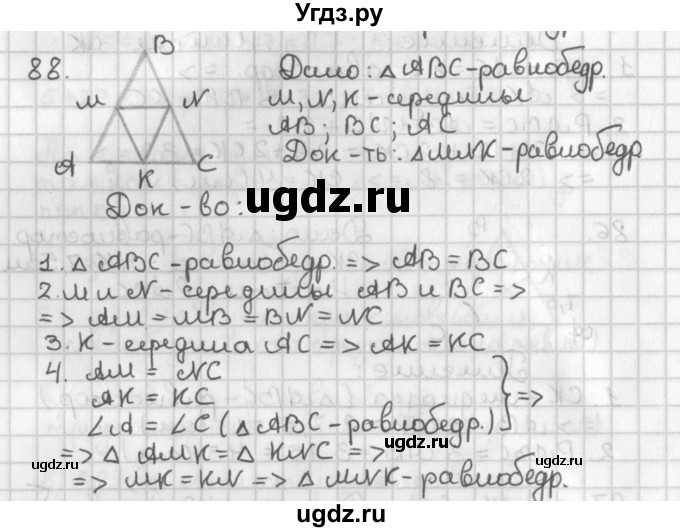 Угдз.ру
88.
B
M N
A K C
Дано: △ABC-равнобедр.
M, N, K - середины
AB; BC; AC
Док-ть: △MNK-равнобедр
Док-во:
ugdz.ru
1. △ABC-равнобедр. => AB = BC
2. M и N - середины AB и BC =>
=> AM = MB = BN = NC
3. K - середина AC => AK = KC
4. AM = NC
AK = KC
∠A = ∠C (△ABC-равнобедр.) } =>
=> △AMK = △KNC =>
=> MK = KN => △MNK-равнобедр.
ugdz.ru
ugdz.ru
ugdz.ru
ugdz.ru
ugdz.ru